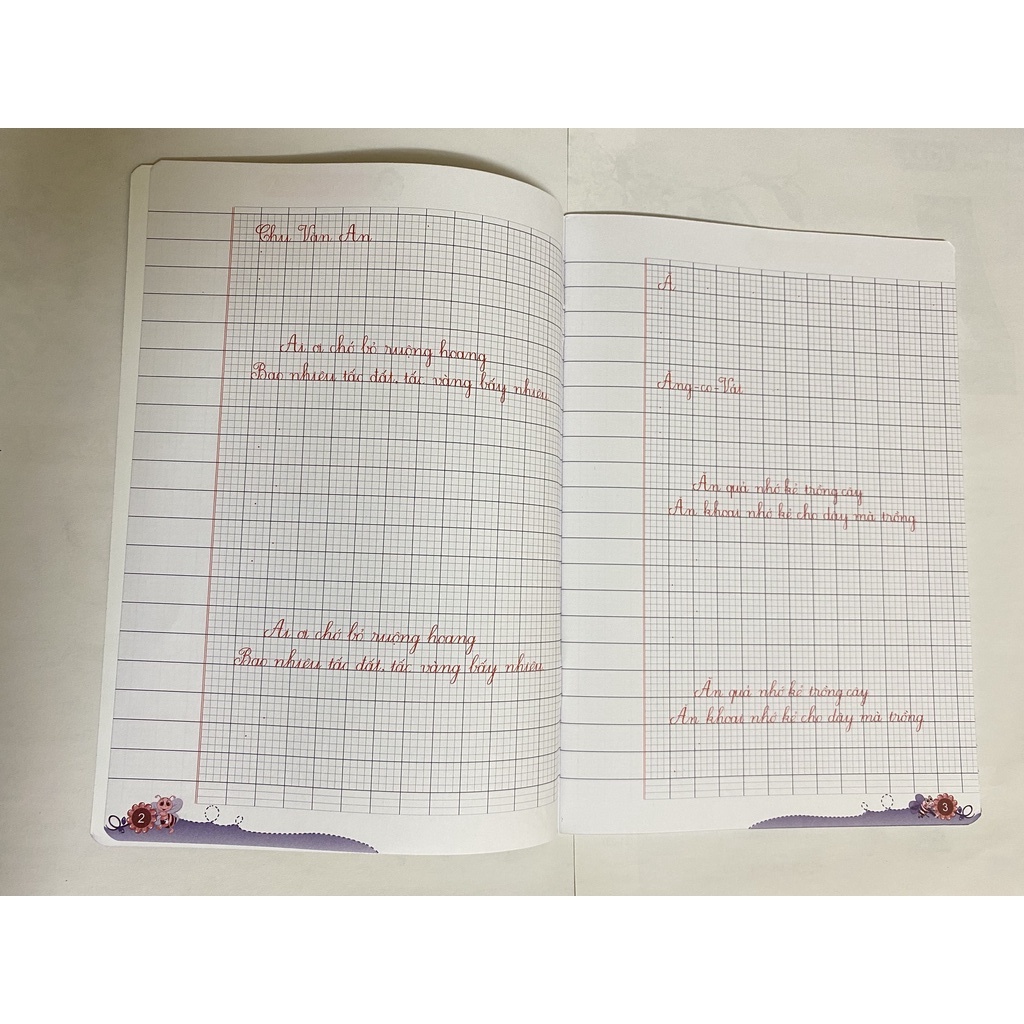 Chu Văn An
Ai ơi chớ bỏ ruộng hoang
Bao nhiêu tấc đất, tấc vàng bấy nhiêu
Ai ơi chớ bỏ ruộng hoang
Bao nhiêu tấc đất, tấc vàng bấy nhiêu
2
Ă
Ăng-co-Vát
Ăn quả nhớ kẻ trồng cây
Ăn khoai nhớ kẻ cho dây mà trồng
Ăn quả nhớ kẻ trồng cây
Ăn khoai nhớ kẻ cho dây mà trồng
3